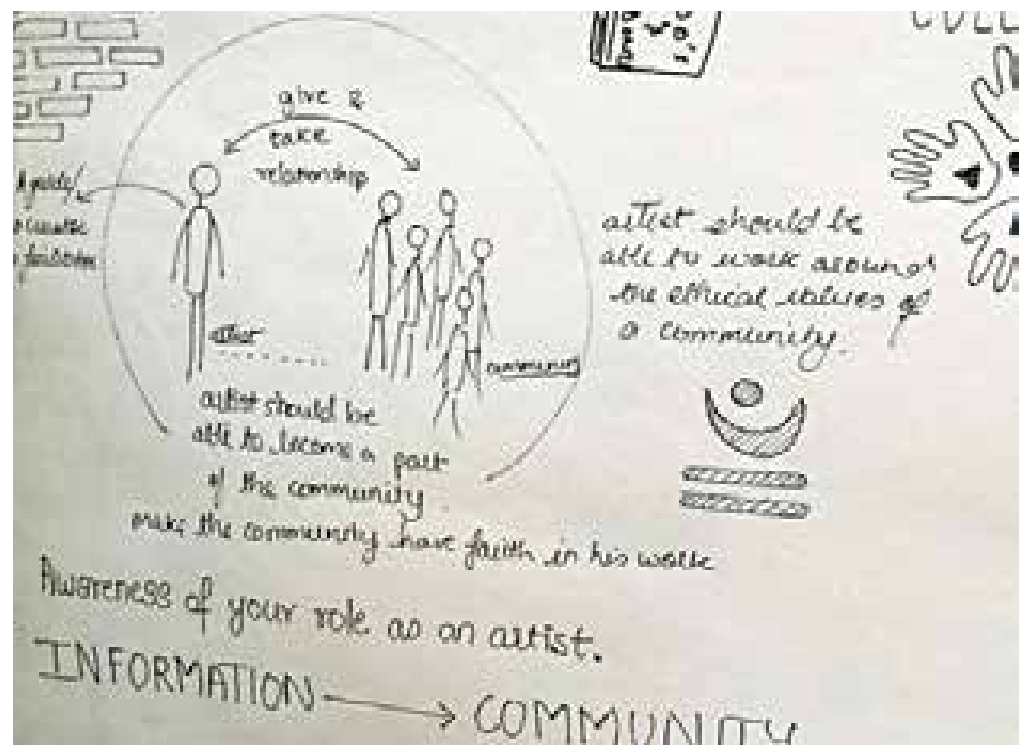 give &
take
relationship
artist
community
artist should be
able to become a part
of the community
make the community have faith in his work
artist should be
able to work around
the ethical values of
a community.
Awareness of your role as an artist.
INFORMATION → COMMUNITY